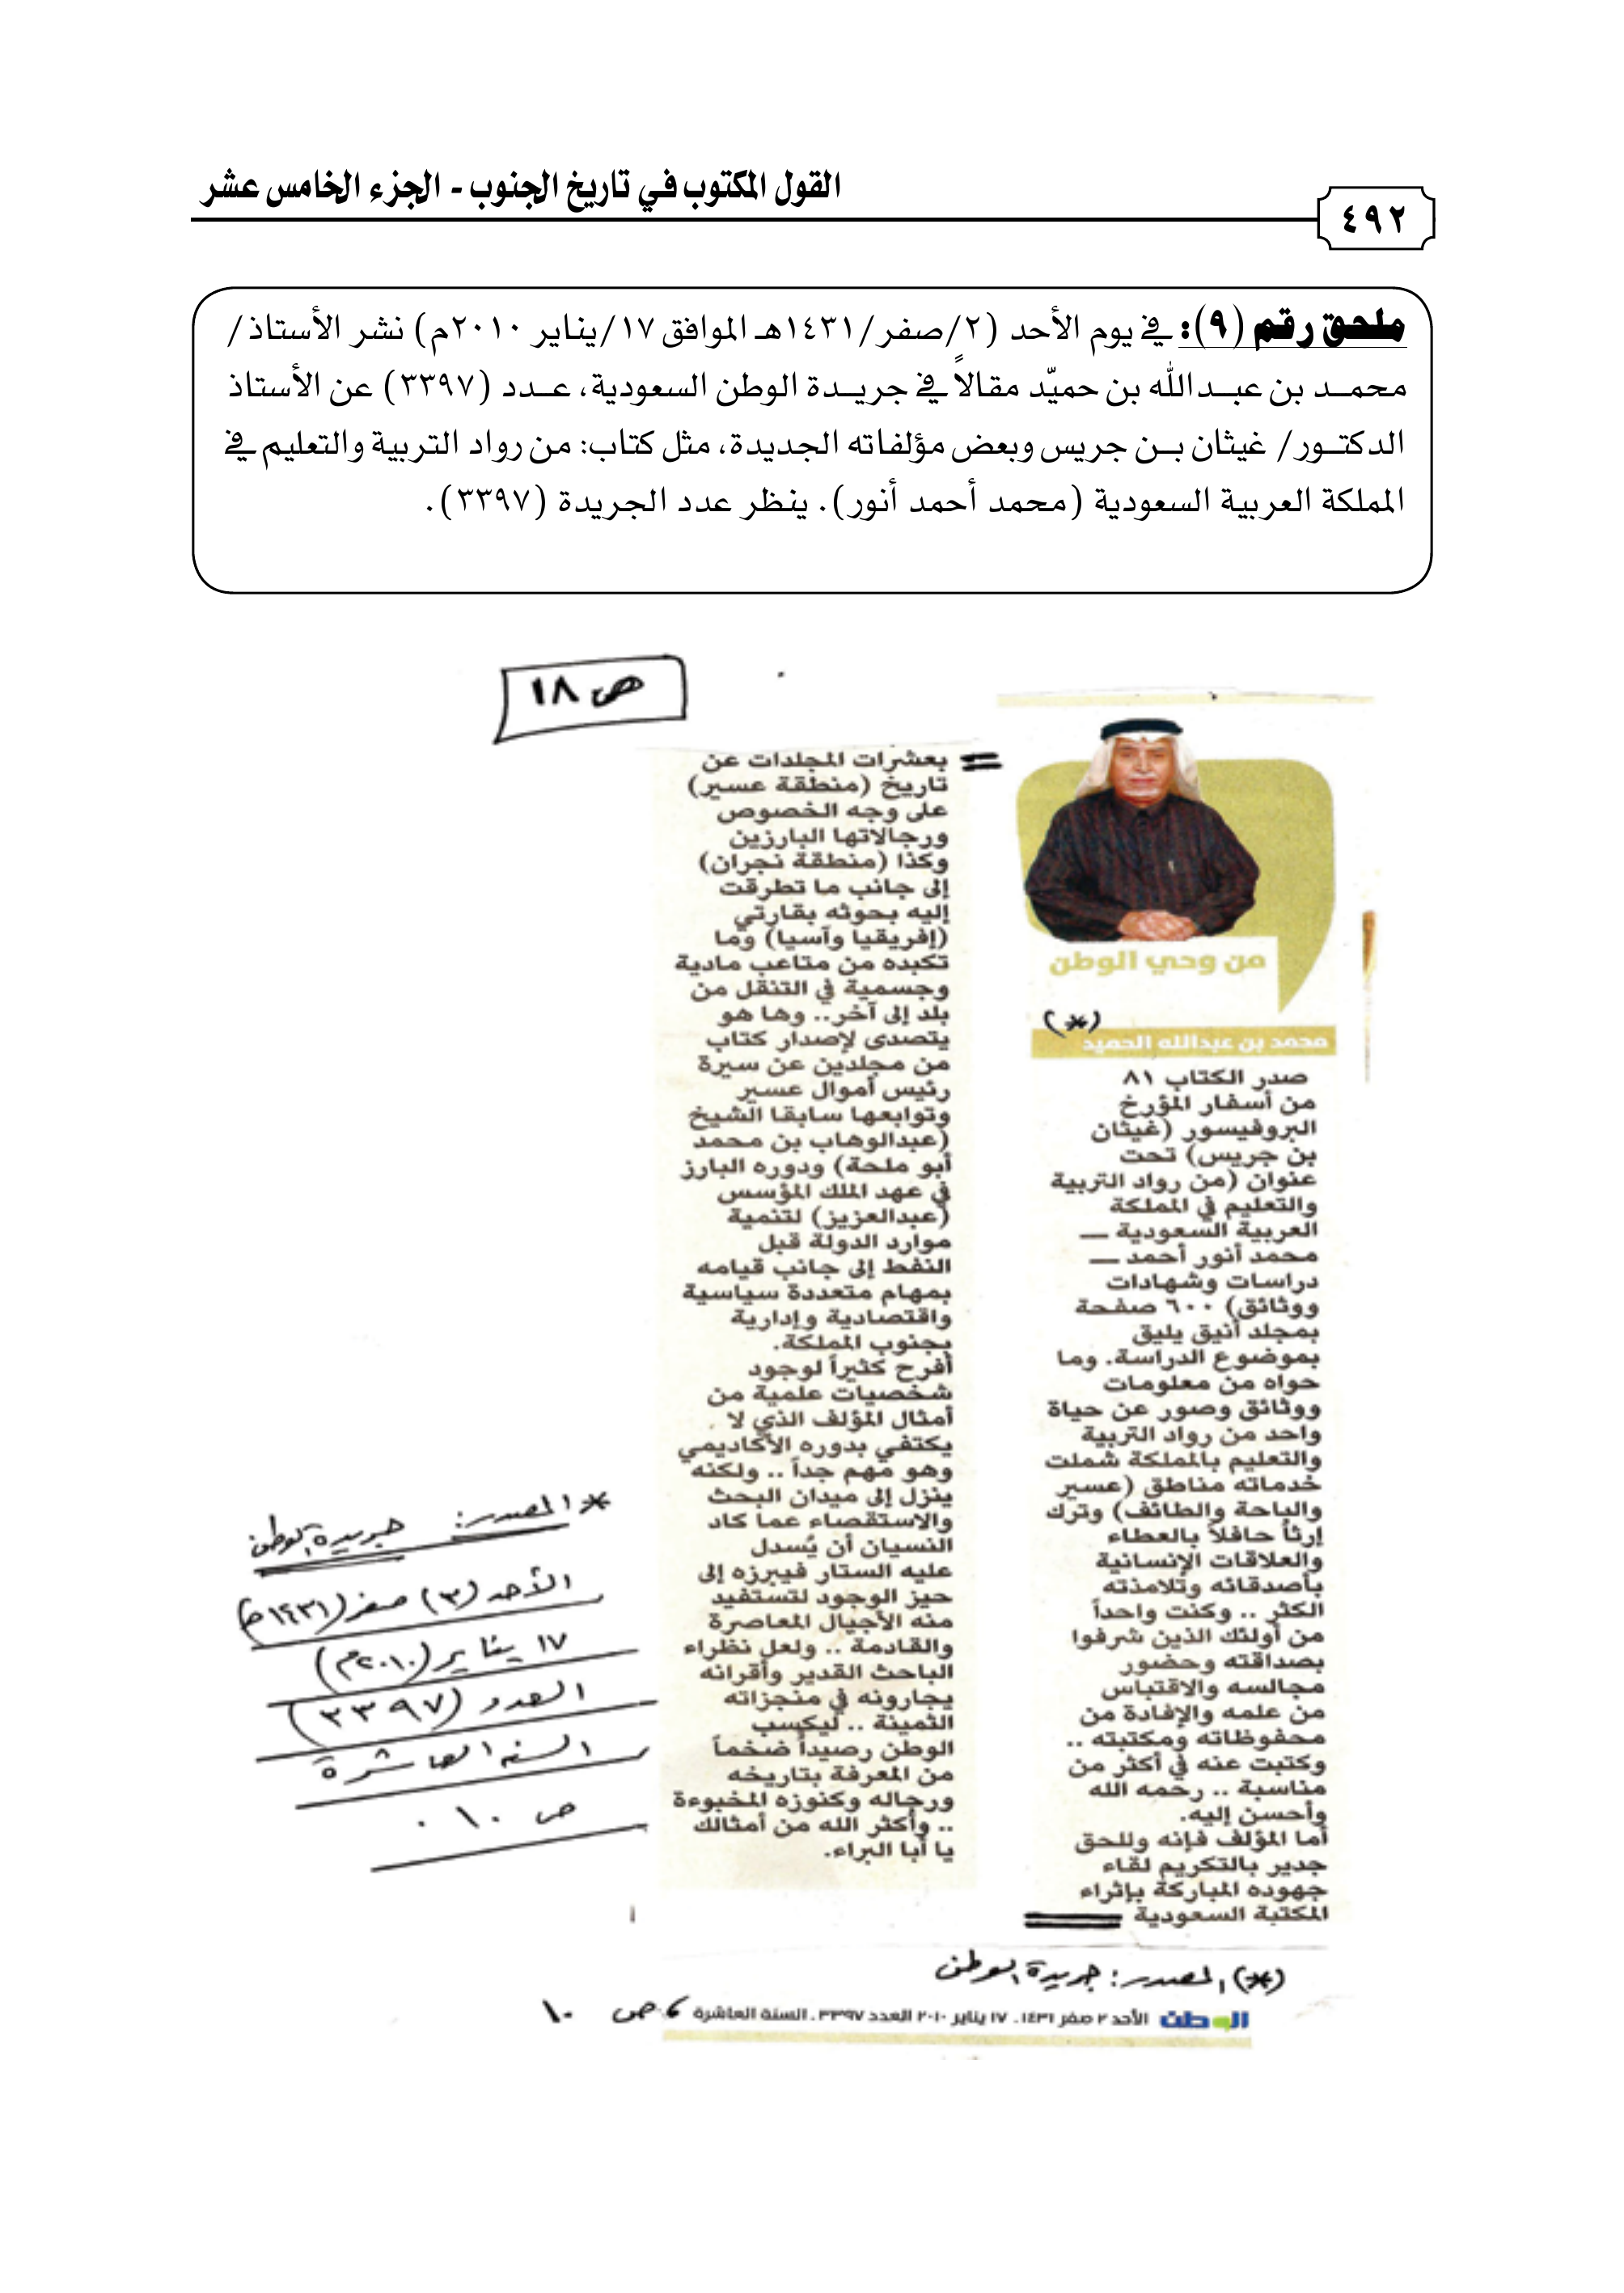 القول المكتوب في تاريخ الجنوب - الجزء الخامس عشر
٤٩٢
ملحق رقم (٩): في يوم الأحد (٢/صفر/١٤٣١هـ الموافق ١٧/يناير ٢٠١٠م) نشر الأستاذ/
محمد بن عبدالله بن حميّد مقالاً في جريدة الوطن السعودية، عدد (٣٣٩٧) عن الأستاذ
الدكتور/ غيثان بن جريس وبعض مؤلفاته الجديدة، مثل كتاب: من رواد التربية والتعليم في
المملكة العربية السعودية (محمد أحمد أنور). ينظر عدد الجريدة (٣٣٩٧).
ص ١٨
من وحي الوطن
(*)
محمد بن عبدالله الحميد
صدر الكتاب ٨١
من أسفار المؤرخ
البروفيسور (غيثان
بن جريس) تحت
عنوان (من رواد التربية
والتعليم في المملكة
العربية السعودية —
محمد أنور أحمد —
دراسات وشهادات
ووثائق) ٦٠٠ صفحة
بمجلد أنيق يليق
بموضوع الدراسة. وما
حواه من معلومات
ووثائق وصور عن حياة
واحد من رواد التربية
والتعليم بالمملكة شملت
خدماته مناطق (عسير
والباحة والطائف) وترك
إرثاً حافلاً بالعطاء
والعلاقات الإنسانية
بأصدقائه وتلامذته
الكثر .. وكنت واحداً
من أولئك الذين شرفوا
بصداقته وحضور
مجالسه والاقتباس
من علمه والإفادة من
محفوظاته ومكتبته ..
وكتبت عنه في أكثر من
مناسبة .. رحمه الله
وأحسن إليه.
أما المؤلف فإنه وللحق
جدير بالتكريم لقاء
جهوده المباركة بإثراء
المكتبة السعودية
بعشرات المجلدات عن
تاريخ (منطقة عسير)
على وجه الخصوص
ورجالاتها البارزين
وكذا (منطقة نجران)
إلى جانب ما تطرقت
إليه بحوثه بقارتي
(إفريقيا وآسيا) وما
تكبده من متاعب مادية
وجسمية في التنقل من
بلد إلى آخر.. وها هو
يتصدى لإصدار كتاب
من مجلدين عن سيرة
رئيس أموال عسير
وتوابعها سابقا الشيخ
(عبدالوهاب بن محمد
أبو ملحة) ودوره البارز
في عهد الملك المؤسس
(عبدالعزيز) لتنمية
موارد الدولة قبل
النفط إلى جانب قيامه
بمهام متعددة سياسية
واقتصادية وإدارية
بجنوب المملكة.
أفرح كثيراً لوجود
شخصيات علمية من
أمثال المؤلف الذي لا
يكتفي بدوره الأكاديمي
وهو مهم جداً .. ولكنه
ينزل إلى ميدان البحث
والاستقصاء عما كاد
النسيان أن يُسدل
عليه الستار فيبرزه إلى
حيز الوجود لتستفيد
منه الأجيال المعاصرة
والقادمة .. ولعل نظراء
الباحث القدير وأقرانه
يجارونه في منجزاته
الثمينة .. ليكسب
الوطن رصيداً ضخماً
من المعرفة بتاريخه
ورجاله وكنوزه المخبوءة
.. وأكثر الله من أمثالك
يا أبا البراء.
* المصدر: جريدة الوطن
الأحد (٣) صفر (١٤٣١هـ)
١٧ يناير (٢٠١٠م)
العدد (٣٣٩٧)
السنة العاشرة
ص ١٠.
(*) المصدر: جريدة الوطن
الوطن الأحد ٢ صفر ١٤٣١ـ ١٧ يناير ٢٠١٠ العدد ٣٣٩٧ـ السنة العاشرة، ص ١٠